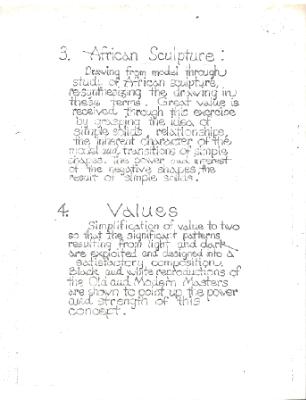 3. African Sculpture:
Drawing from model through
study of African sculpture,
resynthesizing the drawing in
these terms. Great value is
received through this exercise
by grasping the idea of
simple solids, relationships,
the inherent character of the
model and transitions of simple
shapes. The power and interest
of the negative shapes, the
result of simple solids.
4. Values
Simplification of value to two
so that the significant patterns
resulting from light and dark
are exploited and designed into a
satisfactory composition.
Black and white reproductions of
the Old and Modern Masters
are shown to point up the power
and strength of this
concept.